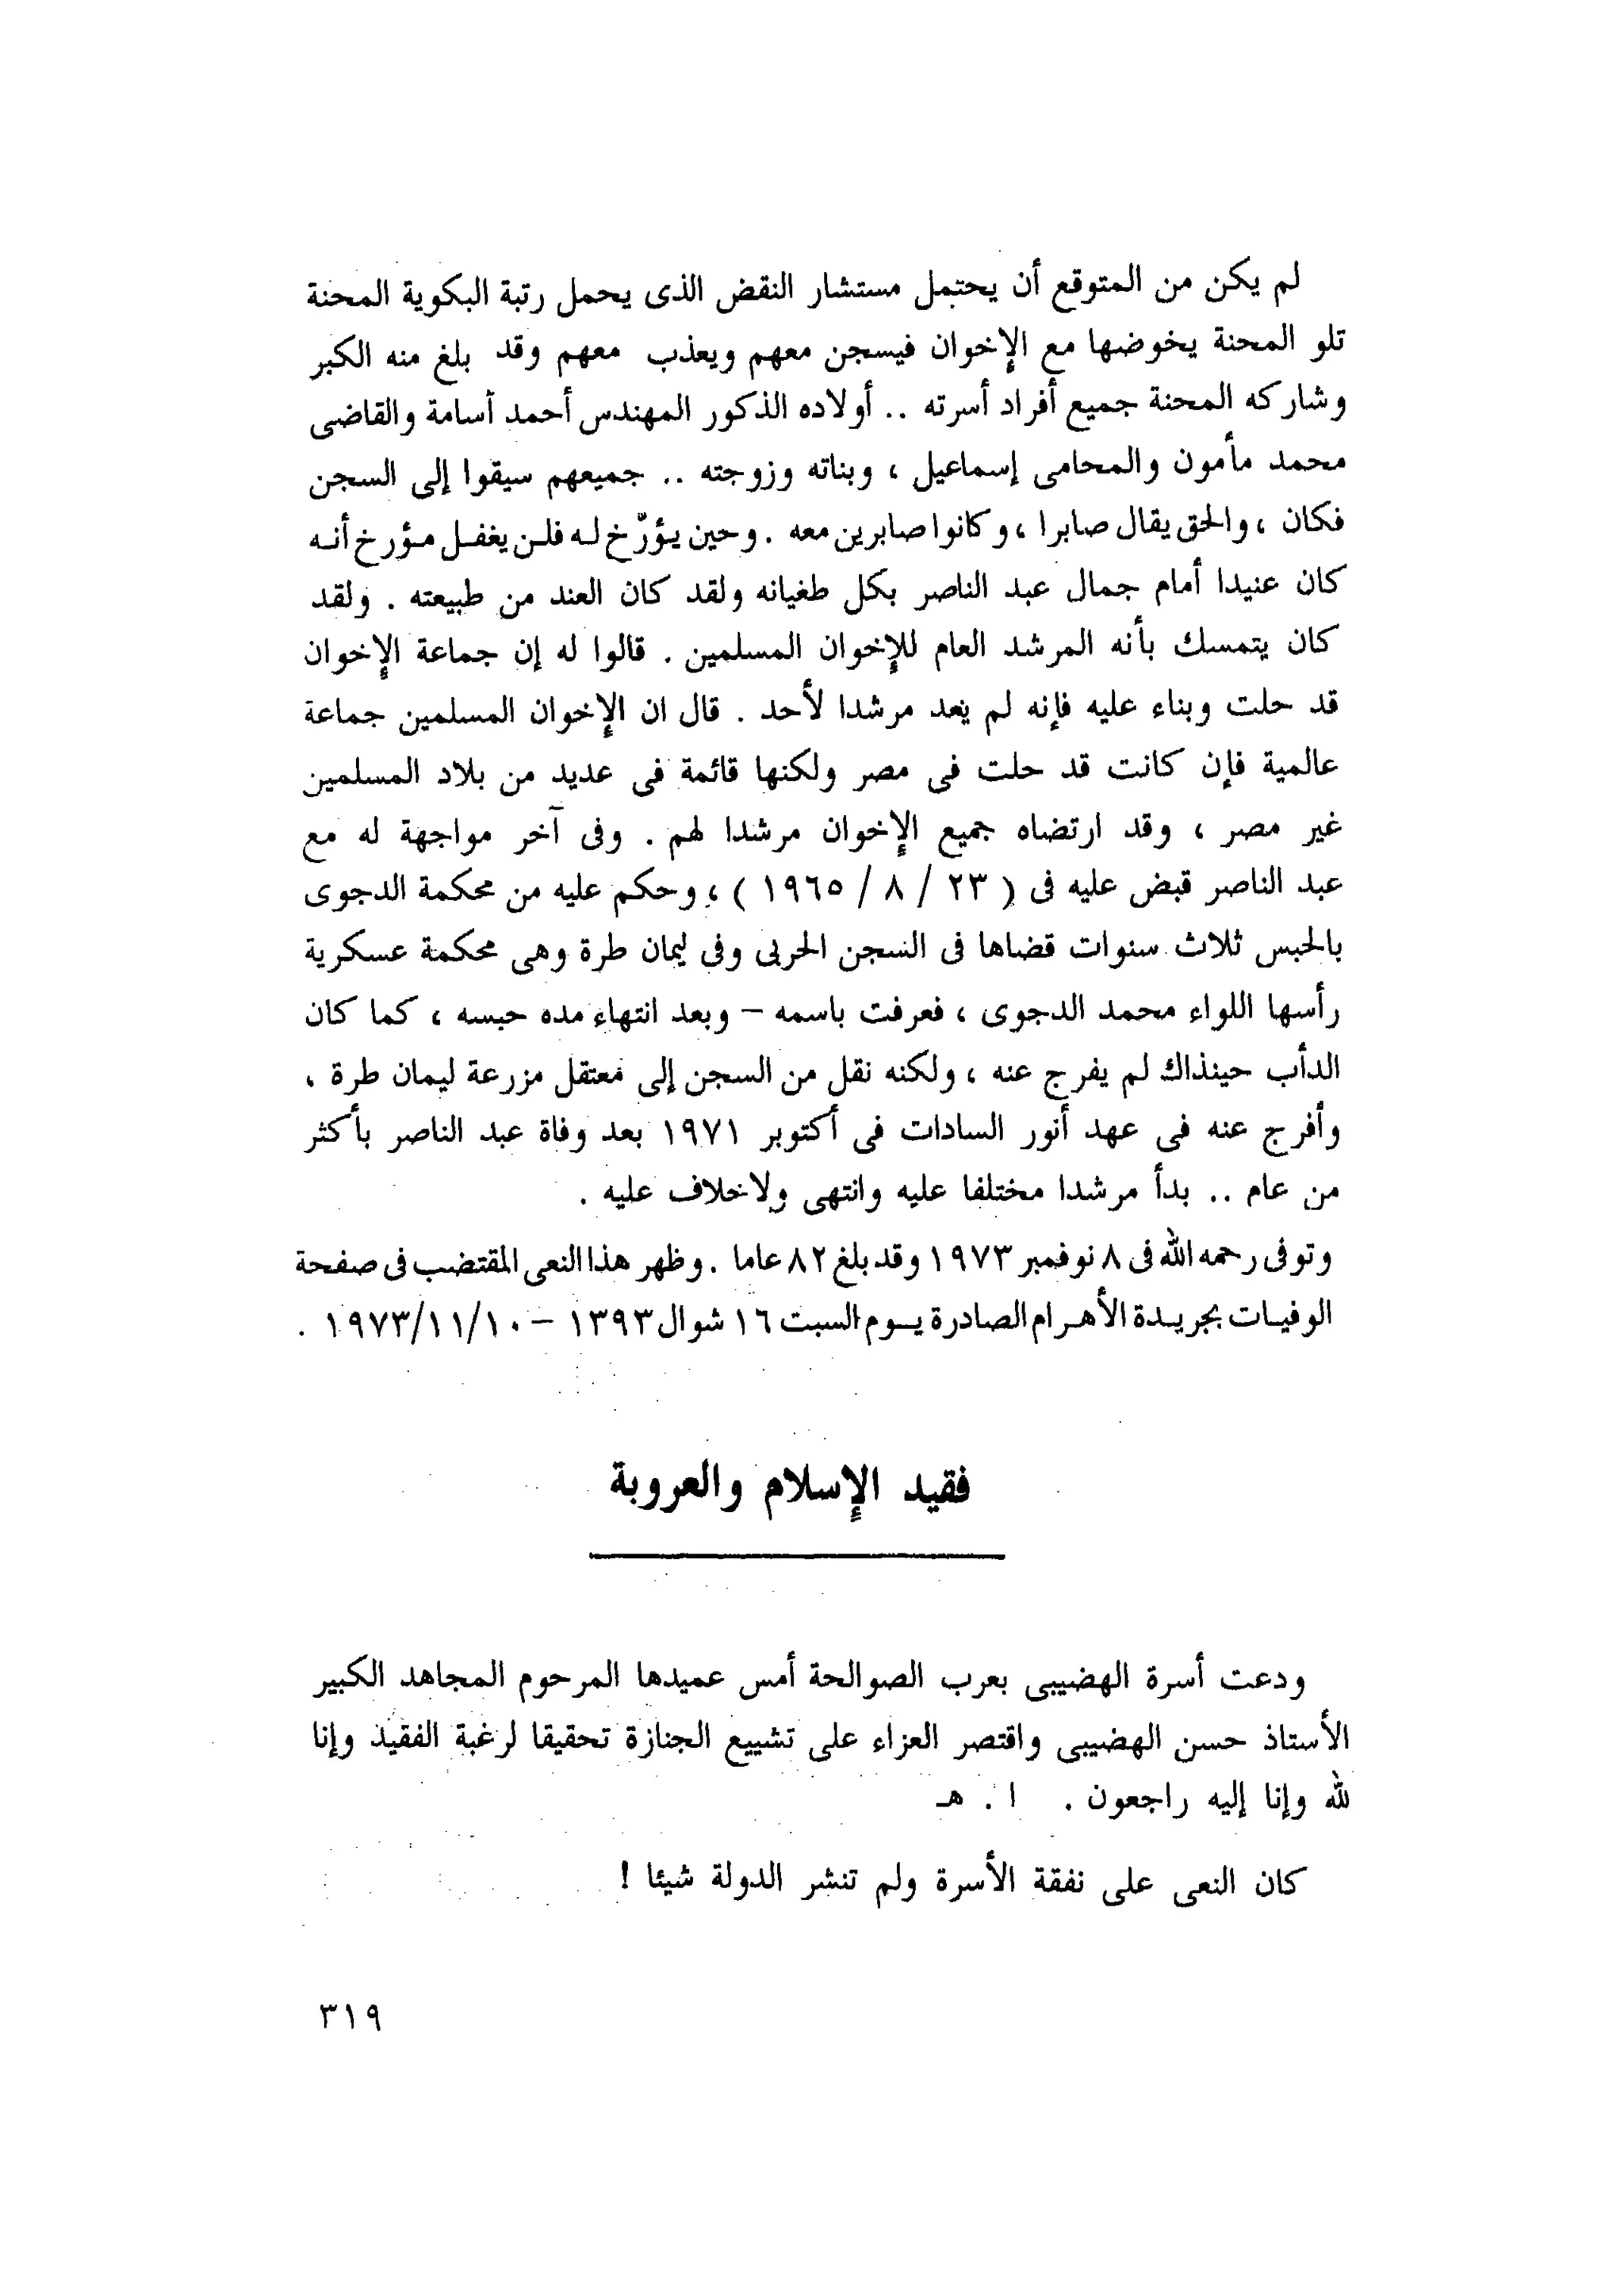 لم يكن من المتوقع أن يحتمل مستشار النقض الذى يحمل رتبة البكوية المحنة
تلو المحنة يخوضها مع الإخوان فيسجن معهم ويعذب معهم وقد بلغ منه الكبر
وشاركه المحنة جميع أفراد أسرته .. أولاده الذكور المهندس أحمد أسامة والقاضى
محمد مأمون والمحامى إسماعيل ، وبناته وزوجته .. جميعهم سيقوا إلى السجن
فكان ، والحق يقال صابرا ، وكانوا صابرين معه . وحين يؤرّخ له فلن يغفل مؤرخ أنه
كان عنيدا أمام جمال عبد الناصر بكل طغيانه ولقد كان العند من طبيعته . ولقد
كان يتمسك بأنه المرشد العام للإخوان المسلمين . قالوا له إن جماعة الإخوان
قد حلت وبناء عليه فإنه لم يعد مرشدا لأحد . قال ان الإخوان المسلمين جماعة
عالمية فإن كانت قد حلت فى مصر ولكنها قائمة فى عديد من بلاد المسلمين
غير مصر ، وقد ارتضاه جميع الإخوان مرشدا لهم . وفى آخر مواجهة له مع
عبد الناصر قبض عليه فى ( ٢٣ / ٨ / ١٩٦٥ ) ، وحكم عليه من محكمة الدجوى
بالحبس ثلاث سنوات قضاها فى السجن الحربى وفى ليمان طرة وهى محكمة عسكرية
رأسها اللواء محمد الدجوى ، فعرفت باسمه – وبعد انتهاء مده حبسه ، كما كان
الدأب حينذاك لم يفرج عنه ، ولكنه نقل من السجن إلى معتقل مزرعة ليمان طرة ،
وأفرج عنه فى عهد أنور السادات فى أكتوبر ١٩٧١ بعد وفاة عبد الناصر بأكثر
من عام .. بدأ مرشدا مختلفا عليه وانتهى ولاخلاف عليه .
وتوفى رحمه الله فى ٨ نوفمبر ١٩٧٣ وقد بلغ ٨٢ عاما . وظهر هذا النعى المقتضب فى صفحة
الوفيات بجريدة الأهرام الصادرة يوم السبت ١٦ شوال ١٣٩٣ – ١٩٧٣/١١/١٠ .
فقيد الإسلام والعروبة
ودعت أسرة الهضيبى بعرب الصوالحة أمس عميدها المرحوم المجاهد الكبير
الأستاذ حسن الهضيبى واقتصر العزاء على تشييع الجنازة تحقيقا لرغبة الفقيد وإنا
لله وإنا إليه راجعون . ا . هـ
كان النعى على نفقة الأسرة ولم تنشر الدولة شيئا !
٣١٩